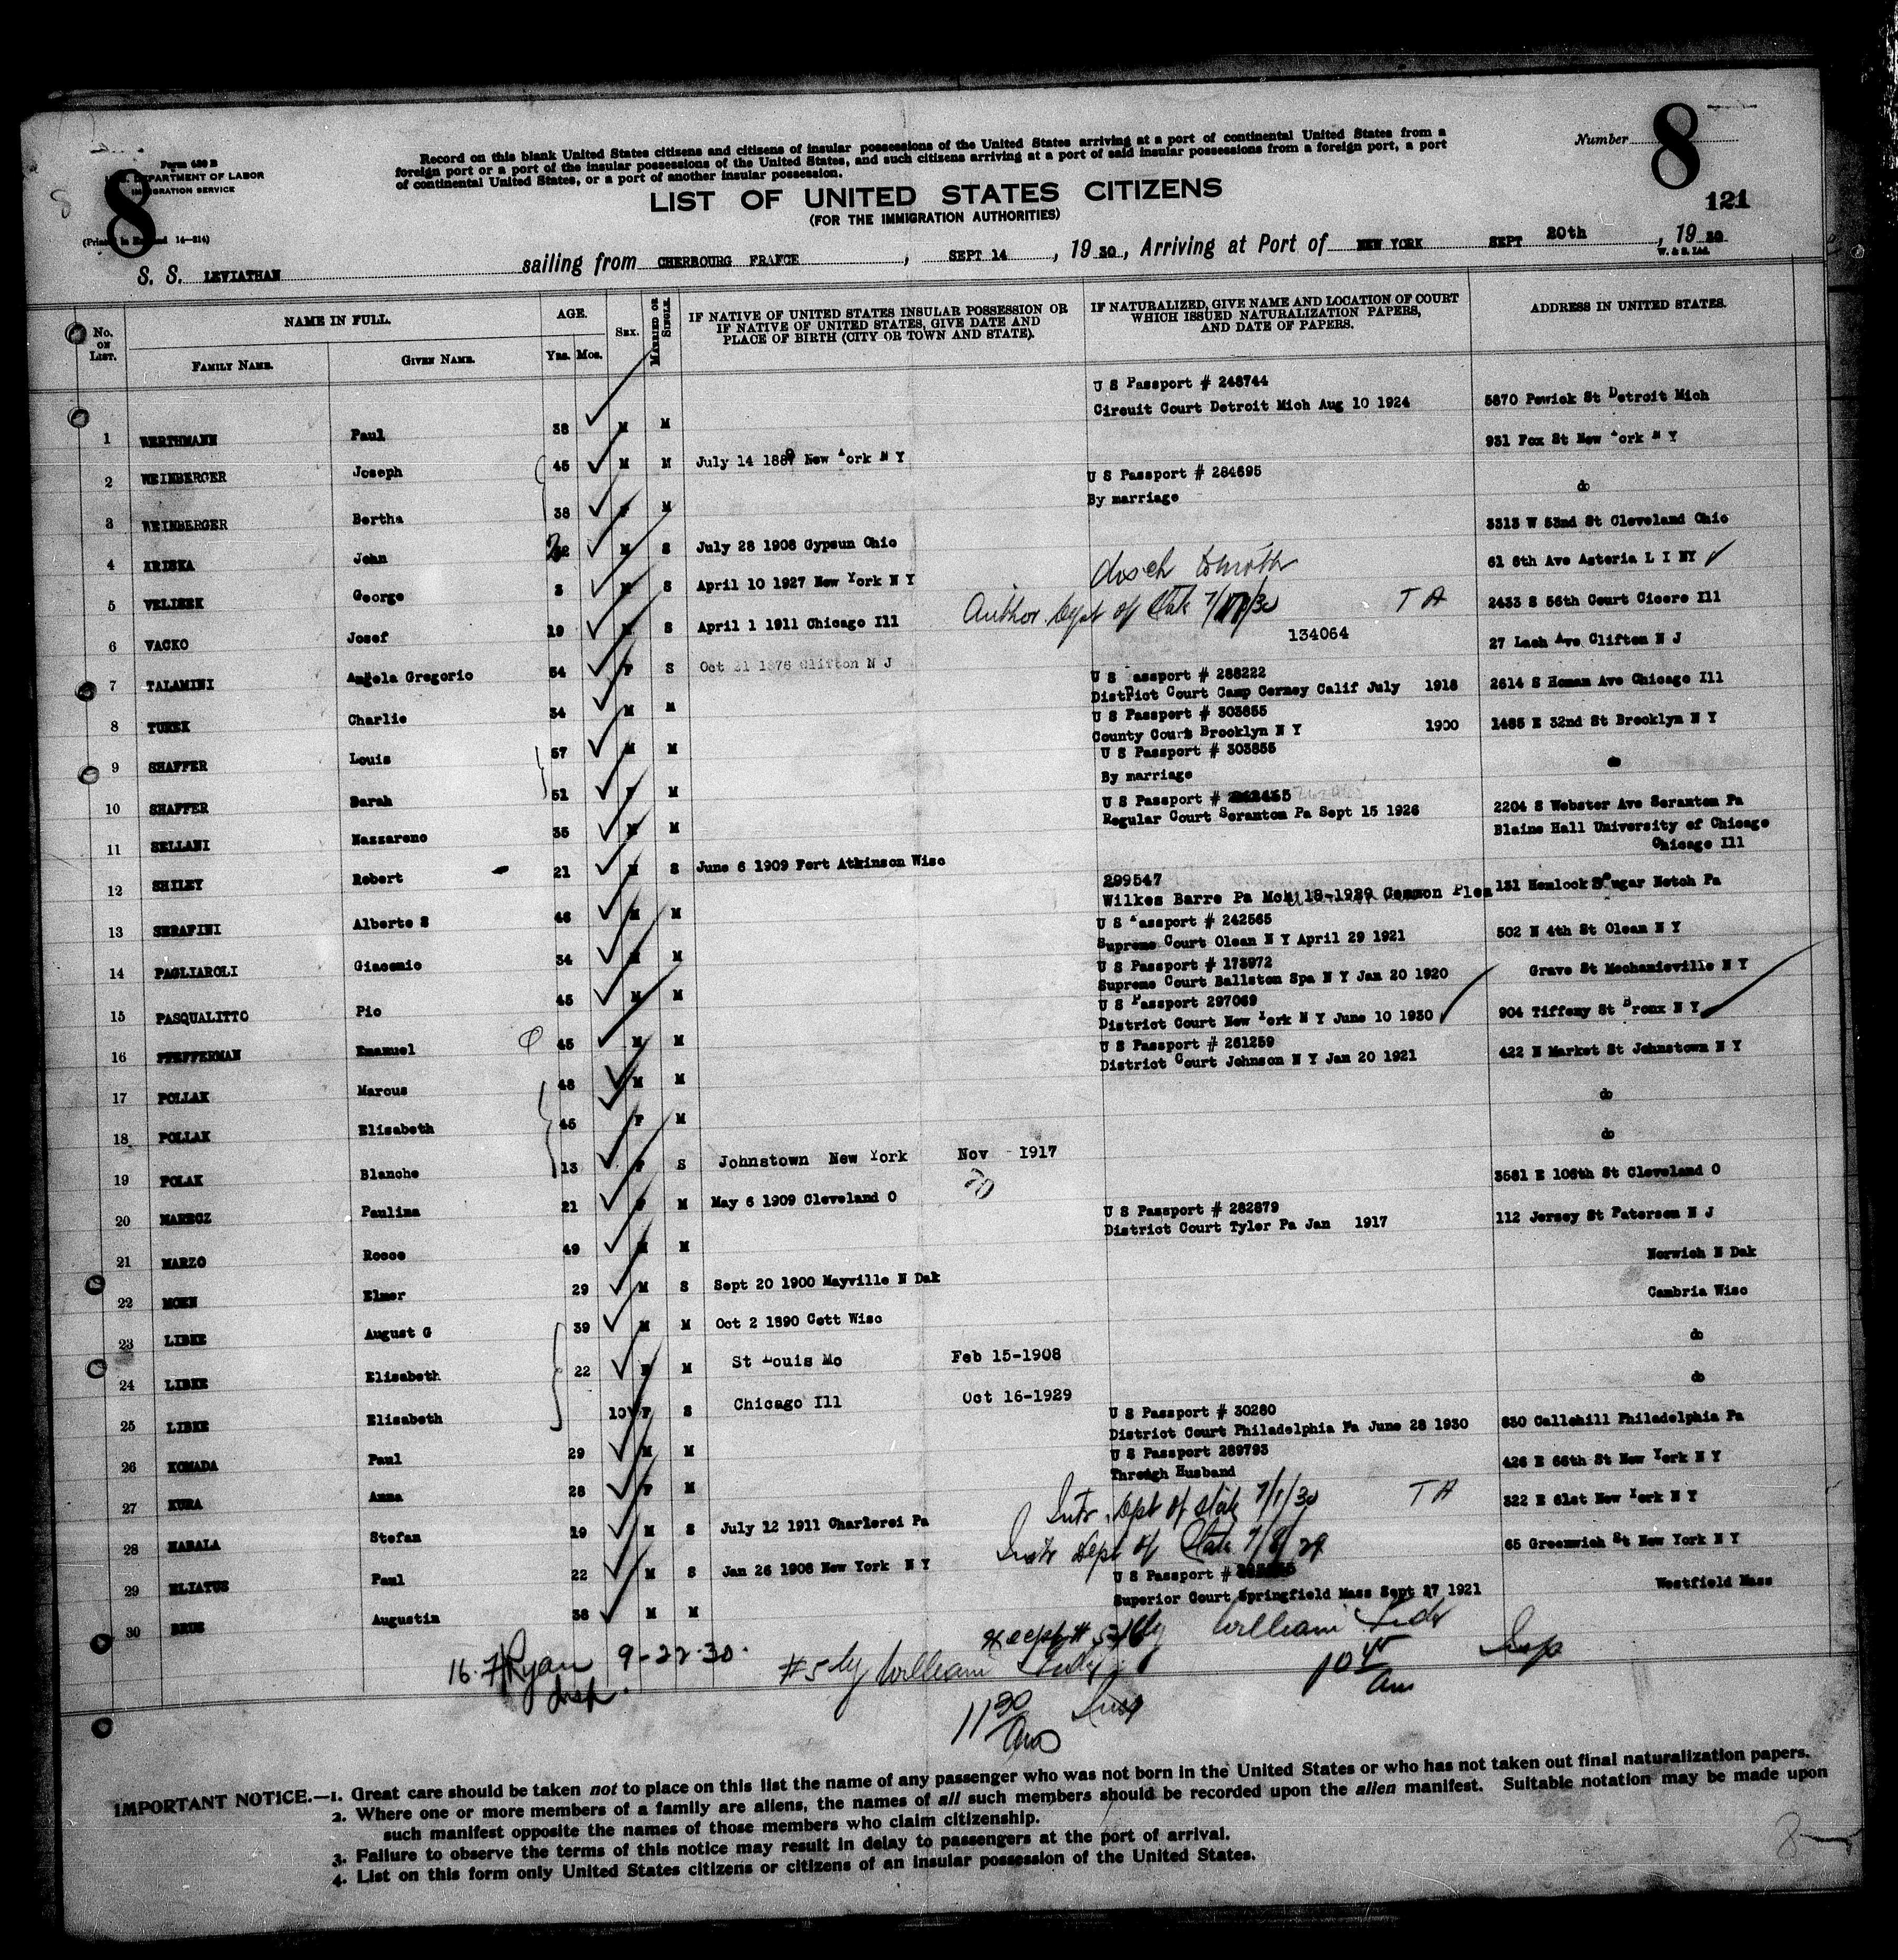 Form 630 B
U.S. DEPARTMENT OF LABOR
IMMIGRATION SERVICE
8
(Printed in England 14—214)
Record on this blank United States citizens and citizens of insular possessions of the United States arriving at a port of continental United States from a
foreign port or a port of the insular possessions of the United States, and such citizens arriving at a port of said insular possessions from a foreign port, a port
of continental United States, or a port of another insular possession.
LIST OF UNITED STATES CITIZENS
(FOR THE IMMIGRATION AUTHORITIES)
Number 8
121
S. S. LEVIATHAN sailing from CHERBOURG FRANCE, SEPT 14, 1930, Arriving at Port of NEW YORK SEPT 20th, 1930
W. & S. Ltd.
No. ON LIST. NAME IN FULL. FAMILY NAME. GIVEN NAME. AGE. YRS. MOS. SEX. MARRIED OR SINGLE. IF NATIVE OF UNITED STATES INSULAR POSSESSION OR IF NATIVE OF UNITED STATES, GIVE DATE AND PLACE OF BIRTH (CITY OR TOWN AND STATE). IF NATURALIZED, GIVE NAME AND LOCATION OF COURT WHICH ISSUED NATURALIZATION PAPERS, AND DATE OF PAPERS. ADDRESS IN UNITED STATES.
1 WERTHMANN Paul 38 M M U S Passport # 248744 Circuit Court Detroit Mich Aug 10 1924 5870 Pewick St Detroit Mich
2 WEINBERGER Joseph 45 M M July 14 188 New York N Y 931 Fox St New York N Y
3 WEINBERGER Bertha 38 F M U S Passport # 284695 By marriage do
4 KRISKA John 22 M S July 28 1908 Gypsun Ohio 3313 W 53nd St Cleveland Ohio
5 VELISEK George 3 M S April 10 1927 New York N Y 61 6th Ave Astoria L I NY
6 VACKO Josef 19 M S April 1 1911 Chicago Ill Author. Dept of State 7/17/30 T A 2433 S 56th Court Cicero Ill
7 TALAMINI Angela Gregorio 54 F S Oct 21 1876 Clifton N J 134064 27 Lach Ave Clifton N J
8 TUREK Charlie 34 M M U S Passport # 288222 District Court Camp Cerney Calif July 1918 2614 S Homan Ave Chicago Ill
9 SHAFFER Louis 57 M M U S Passport # 303855 County Court Brooklyn N Y 1900 1485 E 32nd St Brooklyn N Y
10 SHAFFER Sarah 51 F M U S Passport # 303855 By marriage do
11 SELLANI Nazzareno 35 M M U S Passport # Regular Court Scranton Pa Sept 15 1926 2204 S Webster Ave Scranton Pa
12 SHILEY Robert 21 M S June 6 1909 Fort Atkinson Wisc Blaine Hall University of Chicago Chicago Ill
13 SERAFINI Alberto S 46 M M 299547 Wilkes Barre Pa Mch 18-1929 Common Plea 131 Hemlock Sugar Notch Pa
14 PAGLIAROLI Giacomio 34 M M U S Passport # 242565 Supreme Court Olean N Y April 29 1921 502 N 4th St Olean N Y
15 PASQUALITTO Pio 45 M M U S Passport # 173972 Supreme Court Ballston Spa N Y Jan 20 1920 Grave St Mechanicville N Y
16 PFEFFERMAN Emanuel 45 M M U S Passport 297069 District Court New York N Y June 10 1930 904 Tiffeny St Bronx N Y
17 POLLAK Marcus 48 M M U S Passport # 261259 District Court Johnson N Y Jan 20 1921 422 N Market St Johnstown N Y
18 POLLAK Elisabeth 45 F M do
19 POLAK Blanche 13 F S Johnstown New York Nov 20 - 1917 do
20 MARECZ Paulina 21 F M May 6 1909 Cleveland O 3581 E 106th St Cleveland O
21 MARZO Rocco 49 M M U S Passport # 282879 District Court Tyler Pa Jan 1917 112 Jersey St Paterson N J
22 MOEN Elmer 29 M S Sept 20 1900 Mayville N Dak Norwich N Dak
23 LIBKE August G 39 M M Oct 2 1890 Cett Wisc Cambria Wisc
24 LIBKE Elisabeth 22 F M St Louis Mo Feb 15-1908 do
25 LIBKE Elisabeth 10 F S Chicago Ill Oct 16-1929 do
26 KOMADA Paul 29 M M U S Passport # 30280 District Court Philadelphia Pa June 28 1930 830 Callohill Philadelphia Pa
27 KURA Anna 28 F M U S Passport 289793 Through Husband 426 E 66th St New York N Y
28 HABALA Stefan 19 M S July 12 1911 Charleroi Pa Instr. Dept of State 7/1/30 T A 322 E 61st New York N Y
29 ELIATUS Paul 22 M S Jan 26 1908 New York N Y Instr Dept of State 7/8/29 65 Greenwich St New York N Y
30 BRUS Augustin 38 M M U S Passport # Superior Court Springfield Mass Sept 27 1921 Westfield Mass
16. Ryan 9-22-30.
Insp.
except # 5-16 by William
10 45 am
Insp
#5 by William
11 30 am
Insp
IMPORTANT NOTICE.—1. Great care should be taken not to place on this list the name of any passenger who was not born in the United States or who has not taken out final naturalization papers.
2. Where one or more members of a family are aliens, the names of all such members should be recorded upon the alien manifest. Suitable notation may be made upon
such manifest opposite the names of those members who claim citizenship.
3. Failure to observe the terms of this notice may result in delay to passengers at the port of arrival.
4. List on this form only United States citizens or citizens of an insular possession of the United States.
8